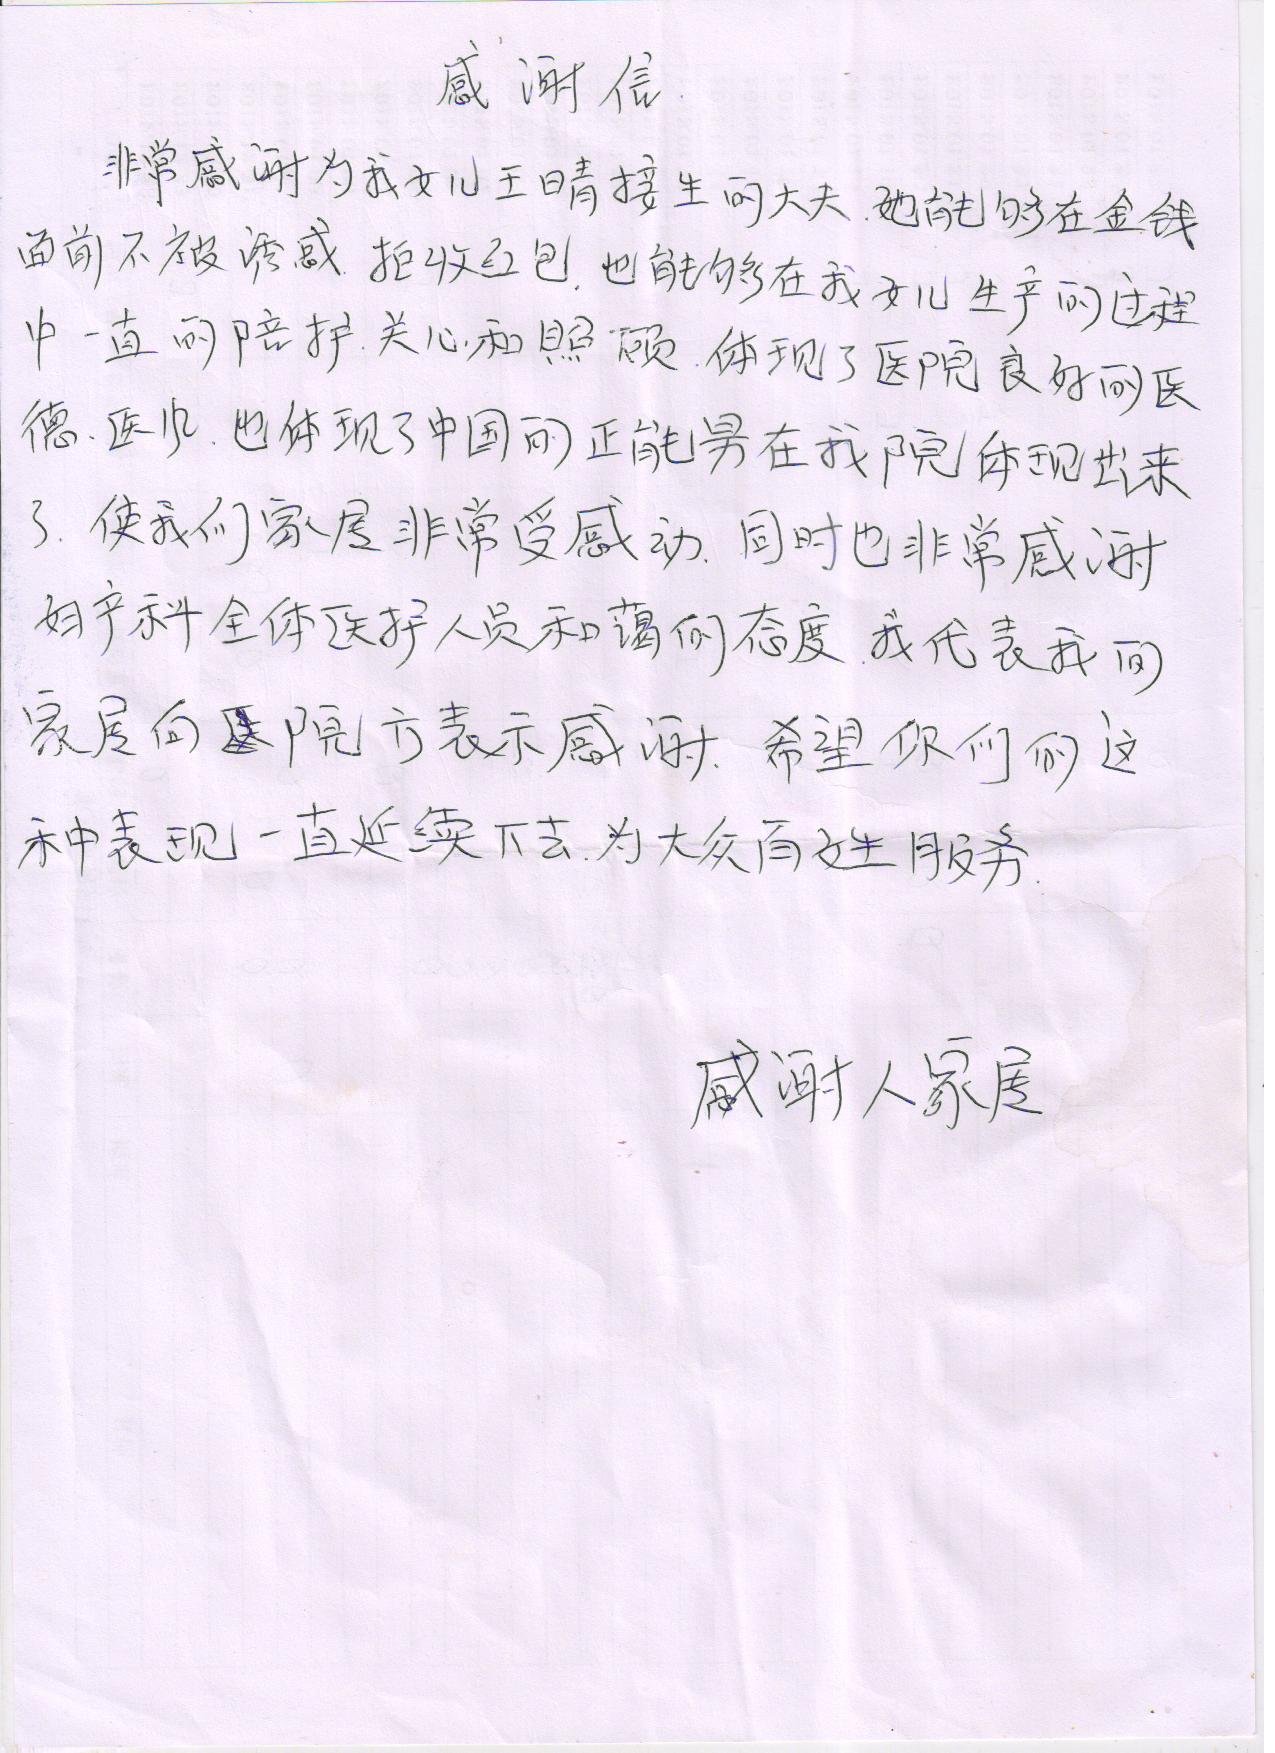 感谢信.
非常感谢为我女儿王晴接生的大夫.她能够在金钱
面前不被诱惑.拒收红包.也能够在我女儿生产的过程
中一直的陪护.关心和照顾.体现了医院良好的医
德.医风.也体现了中国的正能量在我院体现出来
了.使我们家属非常受感动.同时也非常感谢
妇产科全体医护人员和蔼的态度.我代表我的
家属向医院方表示感谢.希望你们的这
种表现一直延续下去.为大众百姓服务.
感谢人家属